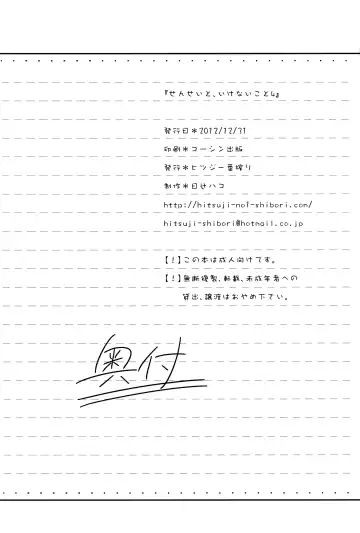 『せんせいと、いけないこと4』
発行日＊2012/12/31
印刷＊コーシン出版
発行＊ヒツジ一番搾り
制作＊日辻ハコ
http://hitsuji-no1-shibori.com/
hitsuji-shibori@hotmail.co.jp
【！】この本は成人向けです。
【！】無断複製、転載、未成年者への
貸出、譲渡はおやめ下さい。
奥付